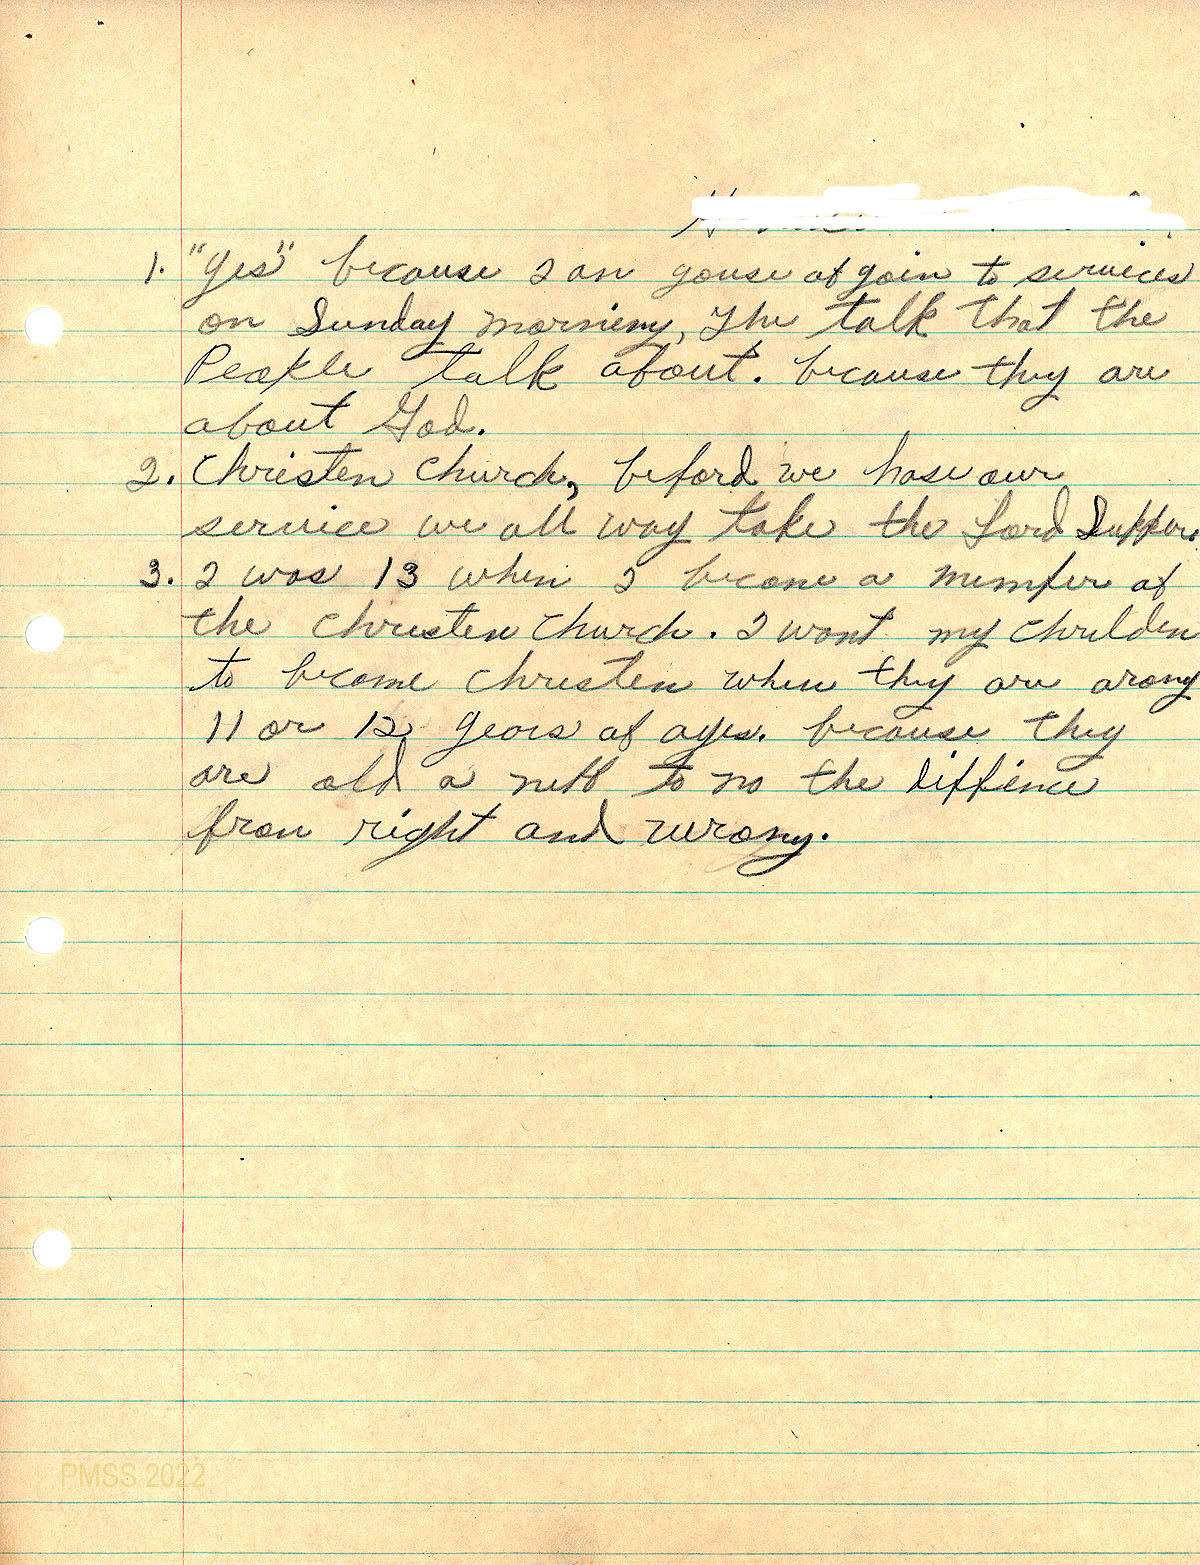 1. "Yes" because I an youse of goin to services
on Sunday morning, The talk that the
People talk about. because they are
about God.
2. Christen Church, beford we hase our
service we all way take the Lord Supper.
3. I was 13 when I become a memfer of
the Christen Church. I want my Children
to become Christen when they are arong
11 or 12 years of ages. because they
are old a neff to no the diffience
from right and wrong.
PMSS 2022